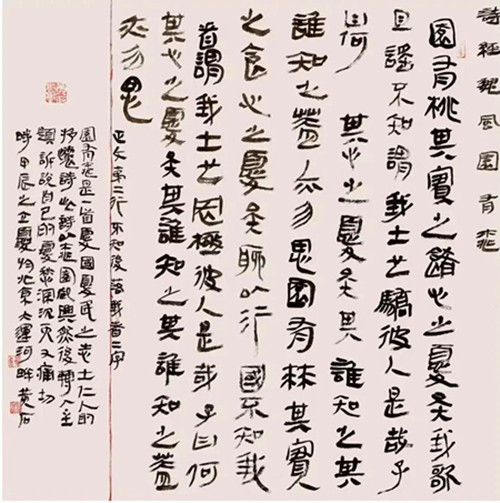 詩經魏風園有桃
園有桃其實之殽心之憂矣我歌
且謠不知謂我士也驕彼人是哉子
曰何其心之憂矣其誰知之其
誰知之蓋亦勿思園有棘其實
之食心之憂矣聊以行國不知我
者謂我士也罔極彼人是哉子曰何
其心之憂矣其誰知之其誰知之蓋
亦勿思
正文第二行不知後落我者二字
園有桃是一首憂國憂民之志士仁人的
抒懷詩此詩以桃園起興然後轉入主
題訴說自己的憂愁深沉而又痛切
時甲辰之立夏於北京大運河畔黃人石